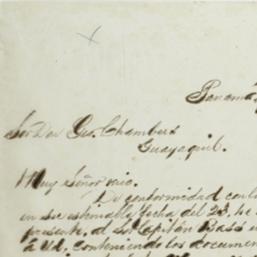 Panamá
Sor Don Geo. Chambers
Guayaquil.
Muy señor mio.
De conformidad con lo
en su estimable fecha del 23, he
presente, al Sr Capitán Bass
á Ud. conteniendo los documen